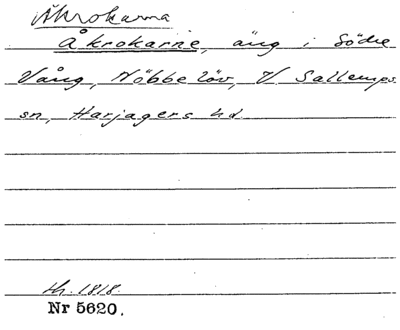 Åkrokarna
Åkrokarne, äng i Södre
Vång, Nöbbelöv, V Sallerups
sn, Harjagers hd
th. 1818.
Nr 5620.